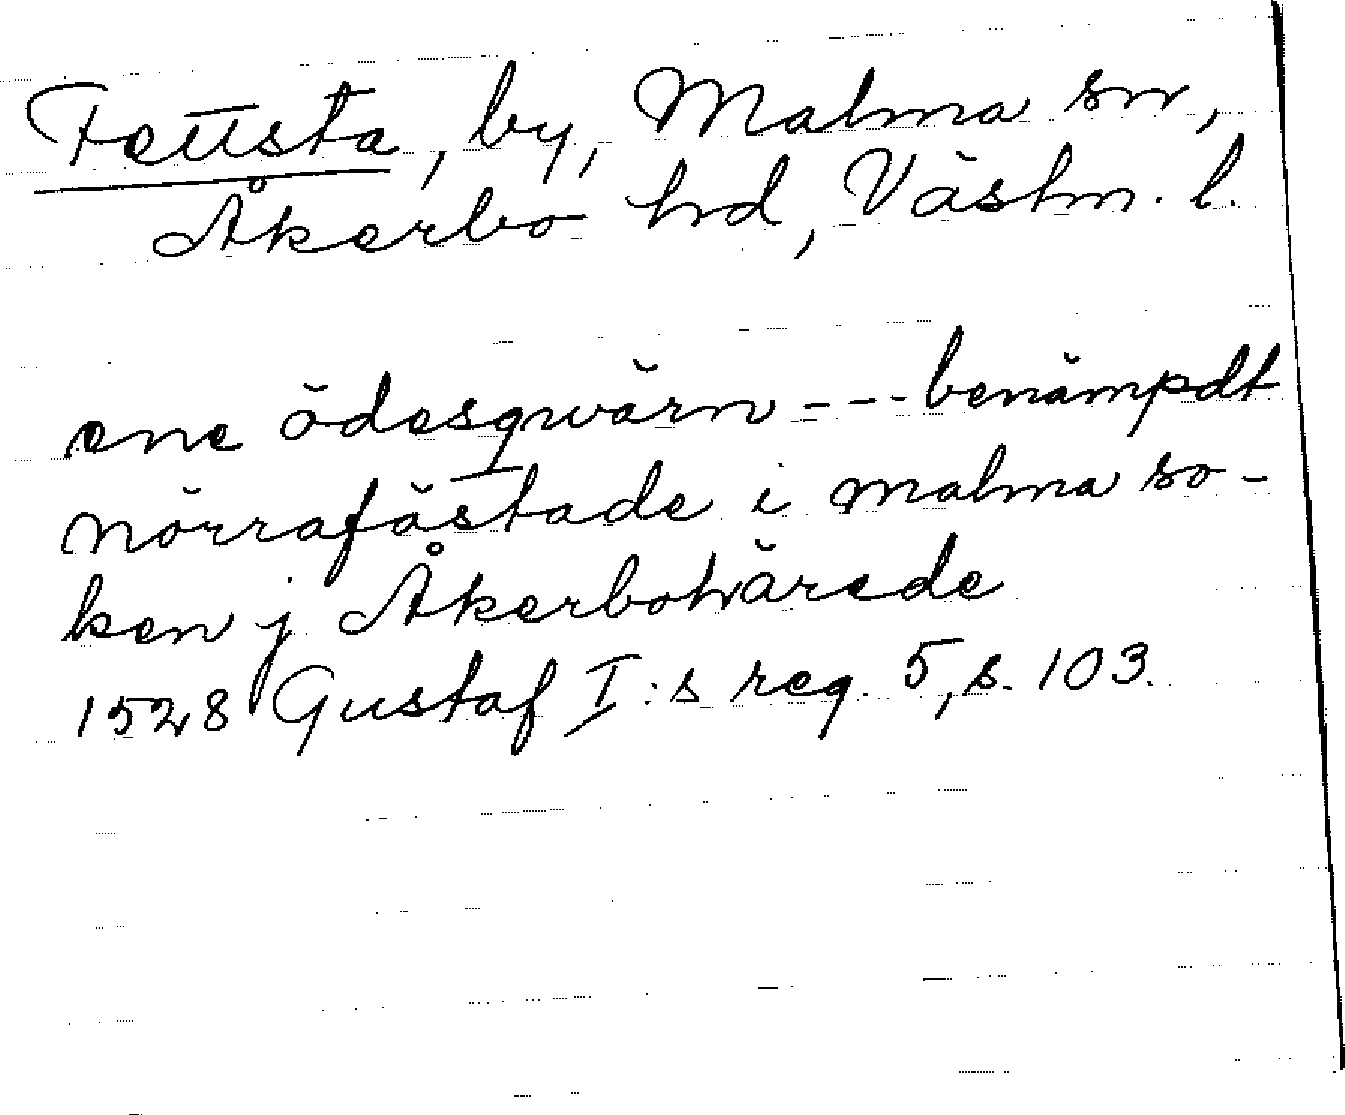 Fettsta, by, Malma sn,
Åkerbo hd, Västm. l.
ene ödesqwärn --- benämpdt
nörrafästade i malma so-
ken j Åkerbohärede
1528 Gustaf I:s reg. 5, s. 103.